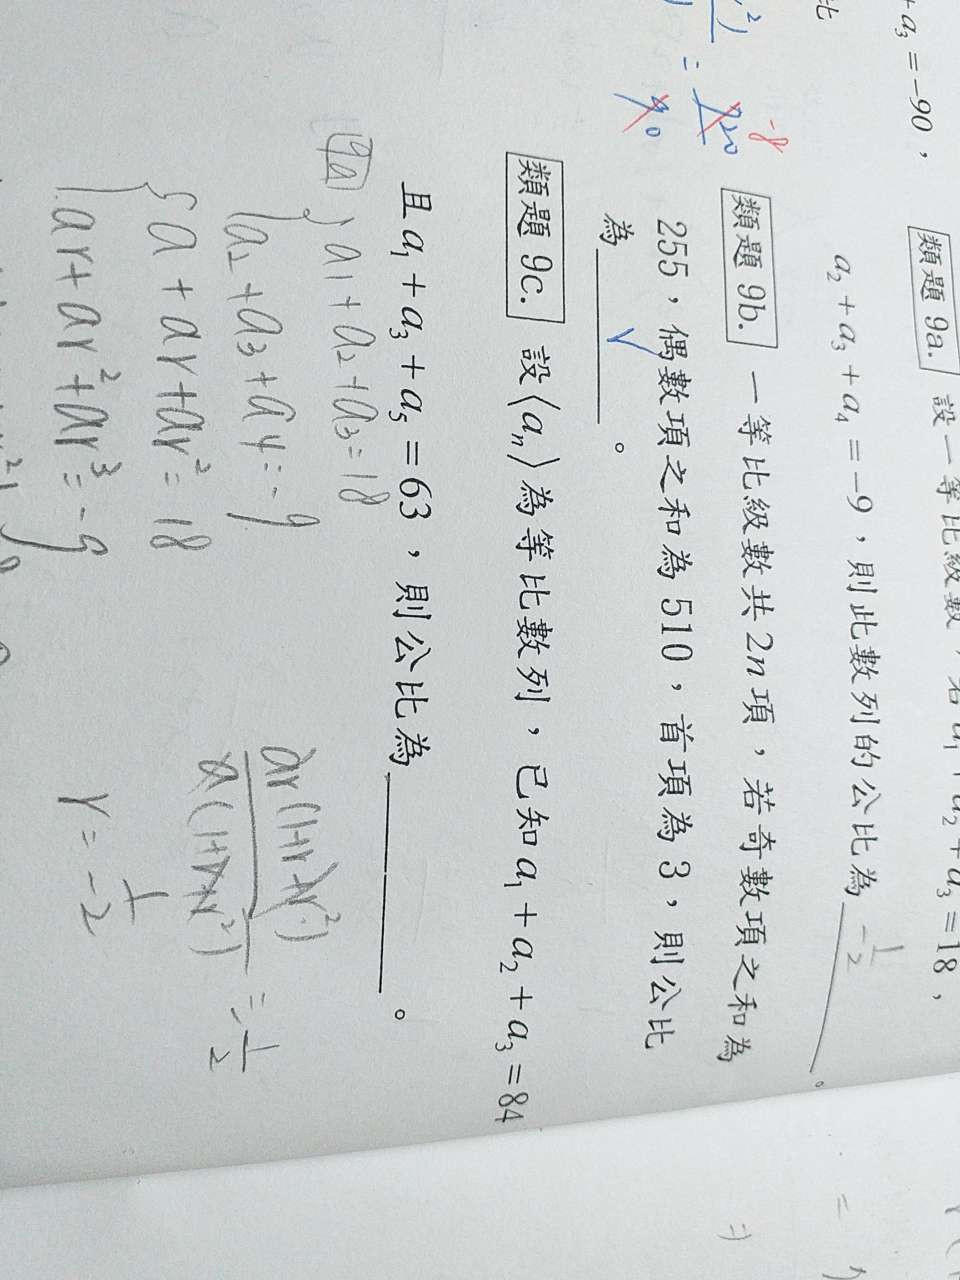 比
+a₃=-90，
²)
= -8
720
90
類題 9a. 設一等比級數，若a₁+a₂+a₃=18，
a₂+a₃+a₄=-9，則此數列的公比為 -1/2 。
類題 9b. 一等比級數共2n項，若奇數項之和為
255，偶數項之和為510，首項為3，則公比
為 。
類題 9c. 設⟨aₙ⟩為等比數列，已知a₁+a₂+a₃=84
且a₁+a₃+a₅=63，則公比為 。
9a
{ a₁+a₂+a₃=18
a₂+a₃+a₄=-9
{ a+ar+ar²=18
ar+ar²+ar³=-9
ar(1+r+r²)
a(1+r+r²) = -1/2
r=-1/2